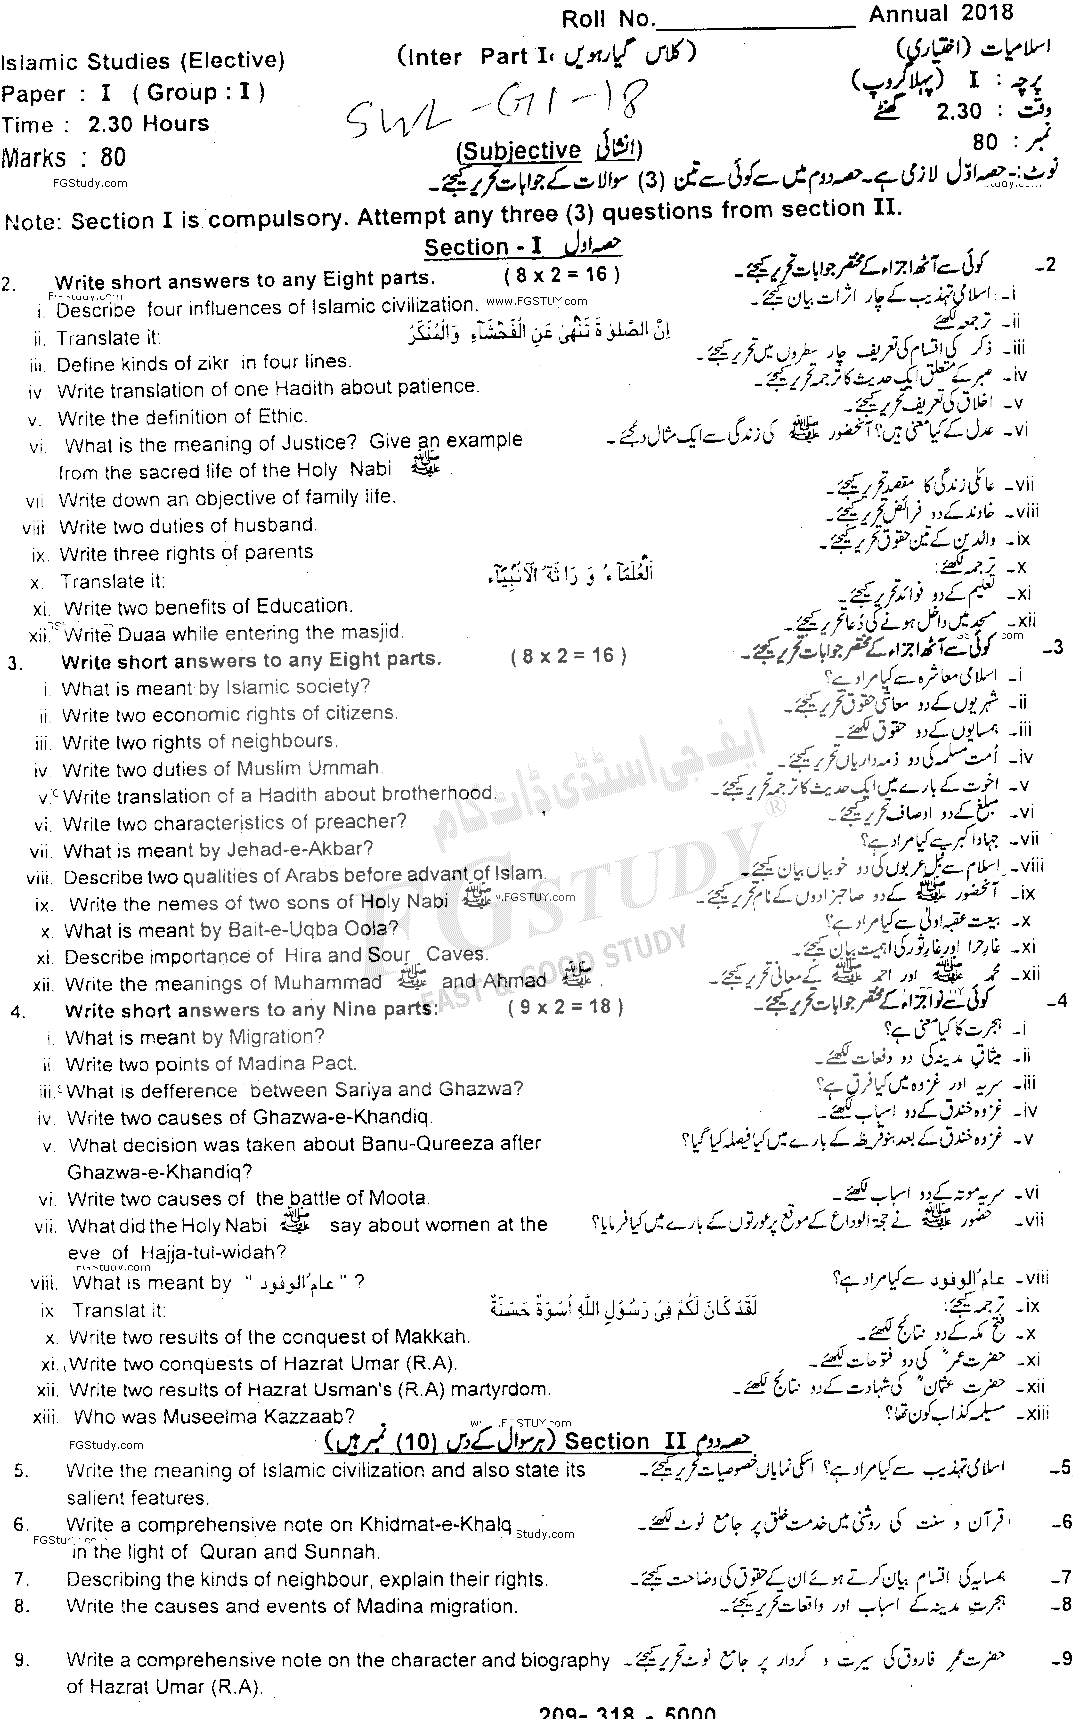 Roll No.______________ Annual 2018
Islamic Studies (Elective) (Inter Part I، کلاس گیارہویں) اسلامیات (اختیاری)
Paper : I ( Group : I ) پرچہ : I (پہلا گروپ)
SWL-G1-18
Time : 2.30 Hours وقت : 2.30 گھنٹے
Marks : 80 (Subjective انشائی) نمبر : 80
FGStudy.com
نوٹ:- حصہ اوّل لازمی ہے۔ حصہ دوم میں سے کوئی سے تین (3) سوالات کے جوابات تحریر کیجئے۔
Note: Section I is compulsory. Attempt any three (3) questions from section II.
Section - I حصہ اول
2. Write short answers to any Eight parts. ( 8 x 2 = 16 ) 2- کوئی سے آٹھ اجزاء کے مختصر جوابات تحریر کیجئے۔
i. Describe four influences of Islamic civilization. www.FGSTUY.com i- اسلامی تہذیب کے چار اثرات بیان کیجئے۔
ii. Translate it: اِنَّ الصَّلوٰةَ تَنْهٰى عَنِ الْفَحْشَآءِ وَالْمُنْكَرُ ii- ترجمہ لکھئے
iii. Define kinds of zikr in four lines. iii- ذکر کی اقسام کی تعریف چار سطروں میں تحریر کیجئے۔
iv Write translation of one Hadith about patience. iv- صبر کے متعلق ایک حدیث کا ترجمہ تحریر کیجئے۔
v. Write the definition of Ethic. v- اخلاق کی تعریف تحریر کیجئے۔
vi. What is the meaning of Justice? Give an example vi- عدل کے کیا معنی ہیں؟ آنحضور ﷺ کی زندگی سے ایک مثال دیجئے۔
from the sacred life of the Holy Nabi ﷺ .
vii Write down an objective of family life. vii- عائلی زندگی کا مقصد تحریر کیجئے۔
viii Write two duties of husband. viii- خاوند کے دو فرائض تحریر کیجئے۔
ix. Write three rights of parents ix- والدین کے تین حقوق تحریر کیجئے۔
x. Translate it: اَلْعُلَمَاءُ وَرَاثَةُ الْاَنْبِيَآءِ x- ترجمہ لکھئے:
xi. Write two benefits of Education. xi- تعلیم کے دو فوائد تحریر کیجئے۔
xii. Write Duaa while entering the masjid. xii- مسجد میں داخل ہونے کی دُعا تحریر کیجئے۔
3. Write short answers to any Eight parts. ( 8 x 2 = 16 ) 3- کوئی سے آٹھ اجزاء کے مختصر جوابات تحریر کیجئے۔
i. What is meant by Islamic society? i- اسلامی معاشرہ سے کیا مراد ہے؟
ii. Write two economic rights of citizens. ii- شہریوں کے دو معاشی حقوق تحریر کیجئے۔
iii. Write two rights of neighbours. iii- ہمسایوں کے دو حقوق لکھئے۔
iv Write two duties of Muslim Ummah. iv- اُمت مسلمہ کی دو ذمہ داریاں تحریر کیجئے۔
v. Write translation of a Hadith about brotherhood. v- اخوت کے بارے میں ایک حدیث کا ترجمہ تحریر کیجئے۔
vi. Write two characteristics of preacher? vi- مبلغ کے دو اوصاف تحریر کیجئے۔
vii. What is meant by Jehad-e-Akbar? vii- جہاد اکبر سے کیا مراد ہے؟
viii. Describe two qualities of Arabs before advant of Islam. viii- اسلام سے قبل عربوں کی دو خوبیاں بیان کیجئے۔
ix. Write the nemes of two sons of Holy Nabi ﷺ ix- آنحضور ﷺ کے دو صاحبزادوں کے نام تحریر کیجئے۔
x. What is meant by Bait-e-Uqba Oola? x- بیعت عقبہ اولیٰ سے کیا مراد ہے؟
xi. Describe importance of Hira and Sour Caves. xi- غار حرا اور غار ثور کی اہمیت بیان کیجئے۔
xii. Write the meanings of Muhammad ﷺ and Ahmad ﷺ . xii- محمد ﷺ اور احمد ﷺ کے معانی تحریر کیجئے۔
ایف جی اسٹڈی ڈاٹ کام
FG STUDY ®
FAST & GOOD STUDY
4. Write short answers to any Nine parts: ( 9 x 2 = 18 ) 4- کوئی سے نو اجزاء کے مختصر جوابات تحریر کیجئے۔
i. What is meant by Migration? i- ہجرت کا کیا معنی ہے؟
ii Write two points of Madina Pact. ii- میثاق مدینہ کی دو دفعات لکھئے۔
iii. What is defference between Sariya and Ghazwa? iii- سریہ اور غزوہ میں کیا فرق ہے؟
iv. Write two causes of Ghazwa-e-Khandiq. iv- غزوہ خندق کے دو اسباب لکھئے۔
v. What decision was taken about Banu-Qureeza after v- غزوہ خندق کے بعد بنو قریظہ کے بارے میں کیا فیصلہ کیا گیا؟
Ghazwa-e-Khandiq?
vi. Write two causes of the battle of Moota. vi- سریہ موتہ کے دو اسباب لکھئے۔
vii. What did the Holy Nabi ﷺ say about women at the vii- حضور ﷺ نے حجۃ الوداع کے موقع پر عورتوں کے بارے میں کیا فرمایا؟
eve of Hajja-tul-widah?
viii. What is meant by " عام الوفود " ? viii- عام الوفود سے کیا مراد ہے؟
ix Translat it: لَقَدْ كَانَ لَكُمْ فِيْ رَسُوْلِ اللّٰهِ اُسْوَةٌ حَسَنَةٌ ix- ترجمہ کیجئے:
x. Write two results of the conquest of Makkah. x- فتح مکہ کے دو نتائج لکھئے۔
xi. Write two conquests of Hazrat Umar (R.A). xi- حضرت عمرؓ کی دو فتوحات لکھئے۔
xii. Write two results of Hazrat Usman's (R.A) martyrdom. xii- حضرت عثمانؓ کی شہادت کے دو نتائج لکھئے۔
xiii. Who was Museelma Kazzaab? xiii- مسیلمہ کذاب کون تھا؟
FGStudy.com (ہر سوال کے دس (10) نمبر ہیں) Section II حصہ دوم
5. Write the meaning of Islamic civilization and also state its 5- اسلامی تہذیب سے کیا مراد ہے؟ اسکی نمایاں خصوصیات تحریر کیجئے۔
salient features.
6. Write a comprehensive note on Khidmat-e-Khalq 6- قرآن و سنت کی روشنی میں خدمت خلق پر جامع نوٹ لکھئے۔
in the light of Quran and Sunnah.
7. Describing the kinds of neighbour, explain their rights. 7- ہمسایہ کی اقسام بیان کرتے ہوئے ان کے حقوق کی وضاحت کیجئے۔
8. Write the causes and events of Madina migration. 8- ہجرت مدینہ کے اسباب اور واقعات تحریر کیجئے۔
9. Write a comprehensive note on the character and biography 9- حضرت عمر فاروق کی سیرت و کردار پر جامع نوٹ تحریر کیجئے۔
of Hazrat Umar (R.A).
209- 318 - 5000